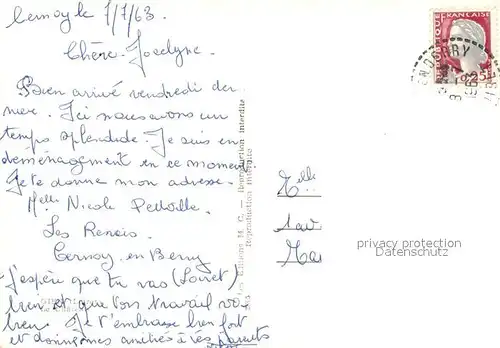 Cernoy le 1/7/63.
Chère Jocelyne.
Bien arrivé vendredi der
nier. Ici nous avons un
temps splendide. Je suis en
déménagement en ce moment
Je te donne mon adresse.
Melle Nicole
Les
Cernoy en Berry
(Loiret)
J'espère que tu vas
bien et que ton travail va
bien. Je t'embrasse bien fort
et donne mes amitiés à tes parents
Reproduction interdite
REPUBLIQUE FRANCAISE
0.25
EN BERRY
Melle
privacy protection
Datenschutz